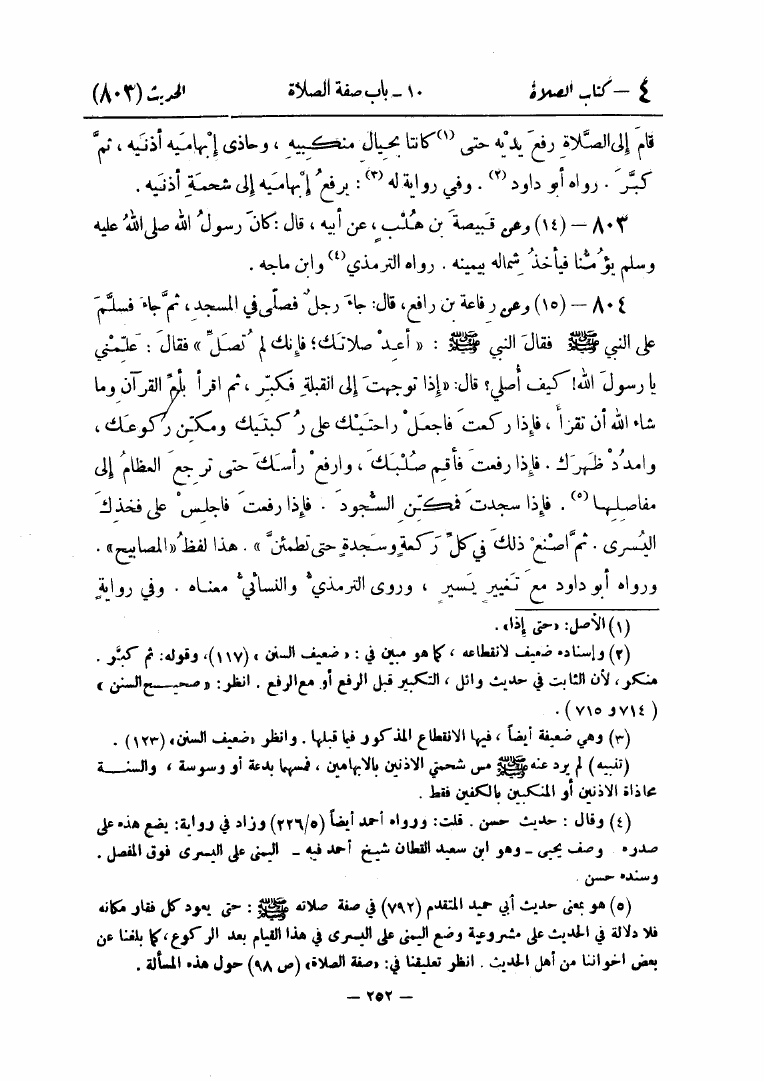 ٤ – كتاب الصلاة ١٠ – باب صفة الصلاة الحديث (٨٠٣)
قامَ إلى الصَّلاةِ رفعَ يديْه حتى (١) كانتا بحيالِ منكبيه ، وحاذى إبهامَيه أذنَيه ، ثمَّ
كبَّرَ . رواه أبو داود (٢) . وفي رواية له (٣) : يرفعُ إبهامَيه إلى شحمةِ أذنَيه .
٨٠٣ – (١٤) وعن قَبيصةَ بن هُلْبٍ، عن أبيه ، قال : كانَ رسولُ الله صلى اللهُ عليه
وسلم يؤُمُّنا فيأخذُ شِماله بيمينه . رواه الترمذي (٤) وابن ماجه .
٨٠٤ – (١٥) وعن رفاعة بن رافع، قال: جاءَ رجلٌ فصلّى في المسجد، ثمَّ جاءَ فسلَّمَ
على النبي ﷺ فقالَ النبي ﷺ : « أعِدْ صلاتكَ؛ فإنك لم تُصلِّ » فقالَ : علِّمْني
يا رسولَ الله! كيف أُصلي؟ قال: «إذا توجهتَ إلى القبلةِ فكبِّر ، ثم اقرأ بأُمِّ القرآنِ وما
شاء الله أن تقرأَ ، فإذا ركعتَ فاجعلْ راحتَيْك على رُكبتَيك ومكّن ركوعَك ،
وامدُدْ ظهرَك . فإذا رفعتَ فأقِم صُلْبَكَ ، وارفعْ رأسَكَ حتى ترجعَ العظامُ إلى
مفاصلِها (٥) . فإذا سجدتَ فمكّنِ السُّجودَ . فإذا رفعتَ فاجلِسْ على فخذِكَ
اليُسرى . ثمَّ اصْنعْ ذلكَ في كلِّ رَكعةٍ وسَجدةٍ حتى تطمئنَّ » . هذا لفظُ «المصابيح» .
ورواه أبو داود معَ تَغييرٍ يَسيرٍ ، وروى الترمذيُّ والنسائيُّ معناه . وفي روايةٍ
(١) الأصل: «حتى إذا».
(٢) وإسناده ضعيف لانقطاعه ، كما هو مبين في : « ضعيف السنن » (١١٧)، وقوله: ثم كبَّر .
منكر، لأن الثابت في حديث وائل ، التكبير قبل الرفع أو مع الرفع . انظر: « صحيح السنن »
(٧١٤ و ٧١٥) .
(٣) وهي ضعيفة أيضاً ، فيها الانقطاع المذكور فيما قبلها . وانظر «ضعيف السنن» (١٢٣) .
(تنبيه) لم يرد عنه ﷺ مس شحمتي الاذنين بالابهامين ، فمسهما بدعة أو وسوسة ، والسنة
محاذاة الاذنين أو المنكبين بالكفين فقط .
(٤) وقال : حديث حسن . قلت: ورواه أحمد أيضاً (٢٢٦/٥) وزاد في رواية: يضع هذه على
صدره وصف يحيى – وهو ابن سعيد القطان شيخ أحمد فيه – اليمنى على اليسرى فوق المفصل .
وسنده حسن .
(٥) هو بمعنى حديث أبي حميد المتقدم (٧٩٢) في صفة صلاته ﷺ : حتى يعود كل فقار مكانه
فلا دلالة في الحديث على مشروعية وضع اليمنى على اليسرى في هذا القيام بعد الركوع، كما بلغنا عن
بعض اخواننا من أهل الحديث . انظر تعليقنا في: «صفة الصلاة» (ص ٩٨) حول هذه المسألة .
– ٢٥٢ –